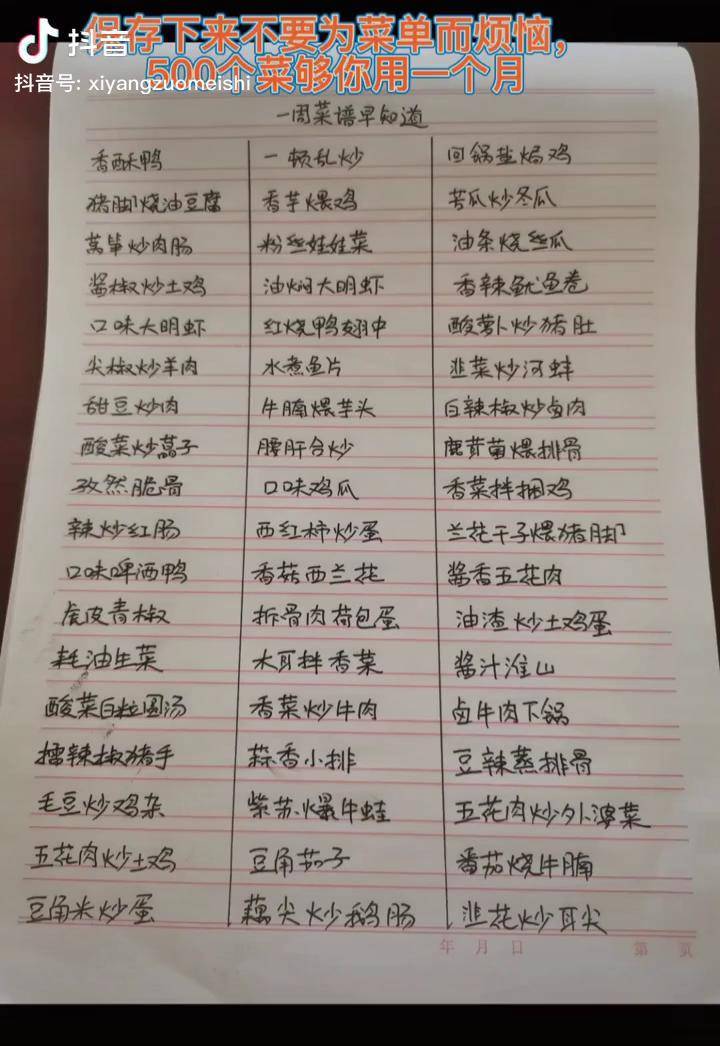 保存下来不要为菜单而烦恼，
抖音
500个菜够你用一个月
抖音号: xiyangzuomeishi
一周菜谱早知道
香酥鸭 一顿乱炒 回锅盐焗鸡
猪脚烧油豆腐 香芋煨鸡 苦瓜炒冬瓜
莴笋炒肉肠 粉丝娃娃菜 油条烧丝瓜
酱椒炒土鸡 油焖大明虾 香辣鱿鱼卷
口味大明虾 红烧鸭翅中 酸萝卜炒猪肚
尖椒炒羊肉 水煮鱼片 韭菜炒河蚌
甜豆炒肉 牛腩煨芋头 白辣椒炒卤肉
酸菜炒蒿子 腰肝合炒 鹿茸菌煨排骨
孜然脆骨 口味鸡瓜 香菜拌捆鸡
辣炒红肠 西红柿炒蛋 兰花干子煨猪脚
口味啤酒鸭 香菇西兰花 酱香五花肉
虎皮青椒 拆骨肉荷包蛋 油渣炒土鸡蛋
耗油生菜 木耳拌香菜 酱汁淮山
酸菜白粒圆汤 香菜炒牛肉 卤牛肉下锅
擂辣椒猪手 蒜香小排 豆辣蒸排骨
毛豆炒鸡杂 紫苏爆牛蛙 五花肉炒外婆菜
五花肉炒土鸡 豆角茄子 番茄烧牛腩
豆角米炒蛋 藕尖炒鹅肠 韭花炒耳尖
年 月 日 第 页